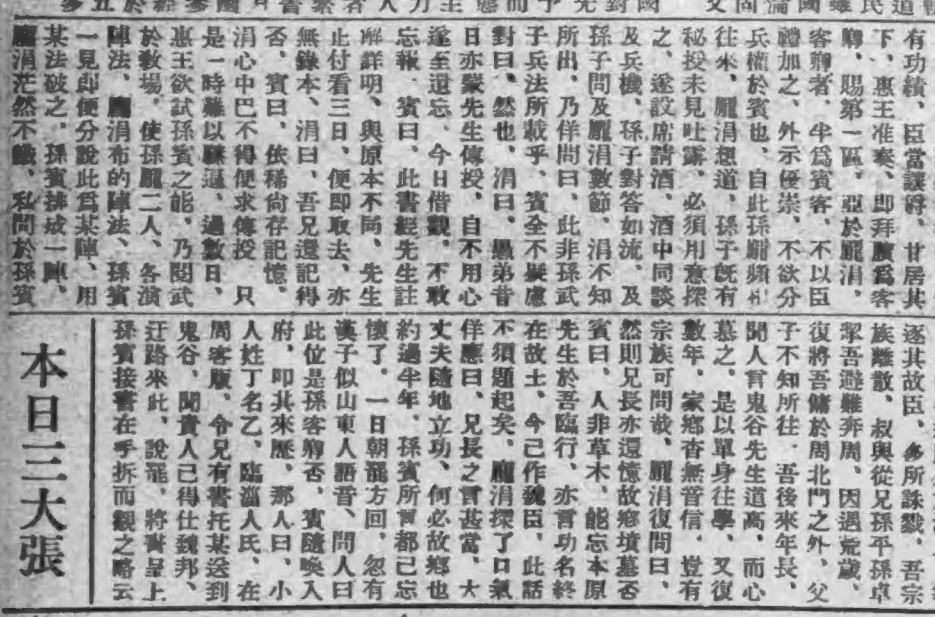 有功績、臣當讓爵、甘居其
下、惠王准奏、即拜臏爲客
卿、賜第一區、亞於龐涓、
客卿者、半爲賓客、不以臣
禮加之、外示優崇、不欲分
兵權於賓也、自此孫龐頻相
往來、龐涓想道、孫子既有
秘授未見吐露、必須用意探
之、遂設席請酒、酒中同談
及兵機、孫子對答如流、及
孫子問及龐涓數節、涓不知
所出、乃佯問曰、此非孫武
子兵法所載乎、賓全不疑慮
對曰、然也、涓曰、愚弟昔
日亦蒙先生傳授、自不用心
遂至遺忘、今日借觀、不敢
忘報、賓曰、此書經先生註
解詳明、與原本不同、先生
止付看三日、便即取去、亦
無錄本、涓曰、吾兄還記得
否、賓曰、依稀尙存記憶、
涓心中巴不得便求傳授、只
是一時難以驟逼、過數日、
惠王欲試孫賓之能、乃閱武
於教塲、使孫龐二人、各演
陣法、龐涓布的陣法、孫賓
一見即便分說此爲某陣、用
某法破之、孫賓排成一陣、
龐涓茫然不識、私問於孫賓
逐其故臣、多所誅戮、吾宗
族離散、叔與從兄孫平孫卓
挈吾避難奔周、因遇荒歲、
復將吾傭於周北門之外、父
子不知所往、吾後來年長、
聞人言鬼谷先生道高、而心
慕之、是以單身往學、又復
數年、家鄉杳無音信、豈有
宗族可問哉、龐涓復問曰、
然則兄長亦還憶故鄉墳墓否
賓曰、人非草木、能忘本原
先生於吾臨行、亦言功名終
在故土、今已作魏臣、此話
不須題起矣、龐涓探了口氣
佯應曰、兄長之言甚當、大
丈夫隨地立功、何必故鄉也
約過半年、孫賓所言都已忘
懷了、一日朝罷方回、忽有
漢子似山東人語音、問人曰
此位是孫客卿否、賓隨喚入
府、叩其來歷、那人曰、小
人姓丁名乙、臨淄人氏、在
周客販、令兄有書托某送到
鬼谷、聞貴人已得仕魏邦、
迂路來此、說罷、將書呈上
孫賓接書在手拆而觀之略云
本日三大張